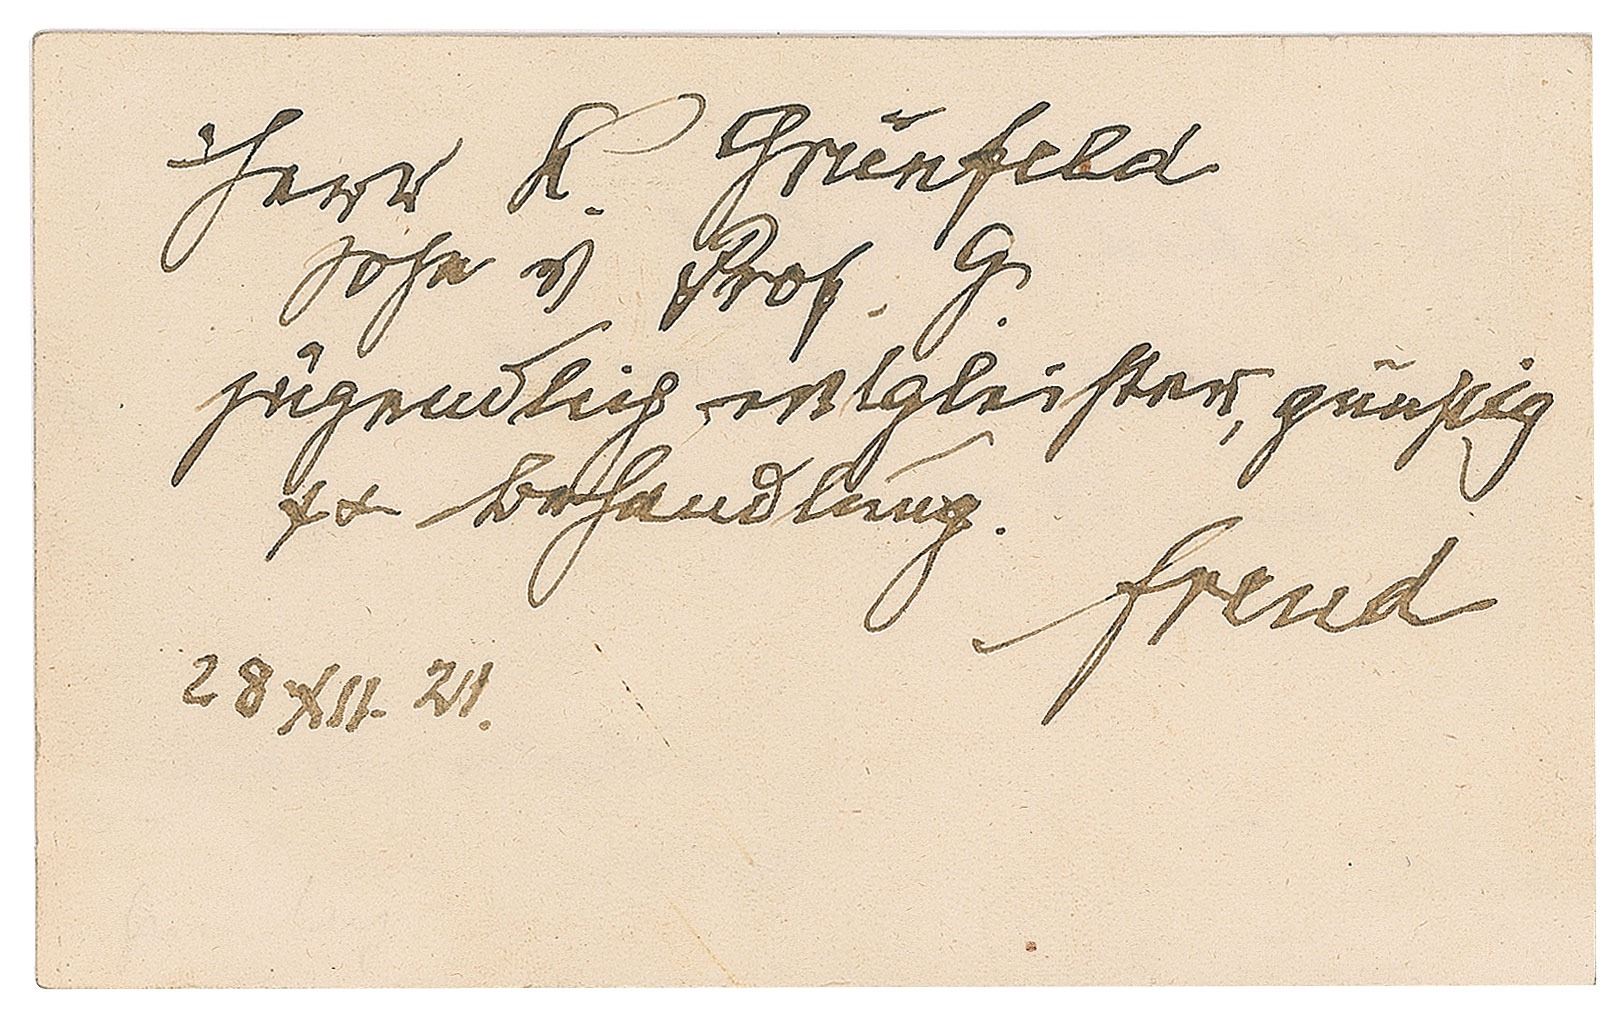 Herr K. Grünfeld
Sohn v Prof. G.
jugendlich entgleister, günstig
Behandlung.
Freud
28 XII. 21.